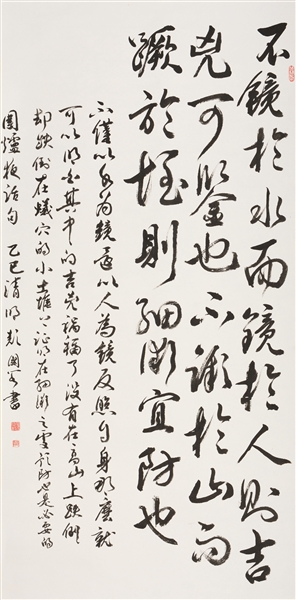 不鏡於水而鏡於人則吉
兇可鑒也不蹶於山而
蹶於垤則細微宜防也
不僅以水為鏡還以人為鏡反照自身那麼就
可以明知其中的吉兇禍福了沒有在高山上跌倒
却跌倒在蟻穴的小土堆上証明在細微之處預防也是必要的
圍爐夜話句 乙巳清明 國 書